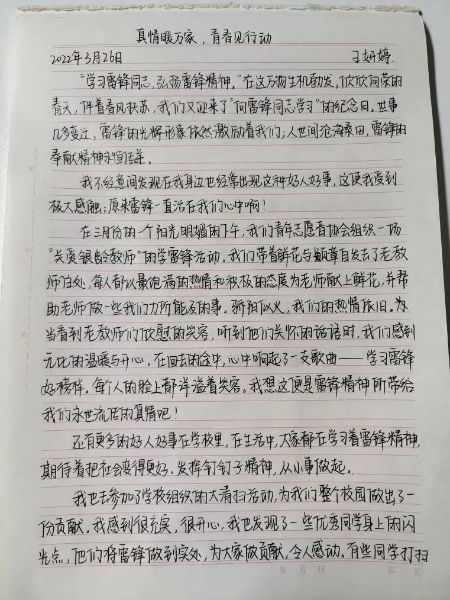 真情暖万家，青春见行动
2022年3月26日 王妍婷
“学习雷锋同志，弘扬雷锋精神。”在这万物生机勃发，欣欣向荣的
春天，伴着春风扶苏，我们又迎来了“向雷锋同志学习”的纪念日。世事
几多变迁，雷锋的光辉形象依然激励着我们；人世间沧海桑田，雷锋的
奉献精神永恒
我不经意间发现在我身边也经常出现这种好人好事，这使我受到
极大感触：原来雷锋一直活在我们心中啊！
在三月份的一个阳光明媚的下午，我们青年志愿者协会组织一场
“关爱银龄教师”的学雷锋活动。我们带着鲜花与颖章自发去了老教
师住处，每人都以最饱满的热情和积极的态度为老师献上鲜花，并帮
助老师做一些我们力所能及的事。骄阳似火，我们的热情依旧。为
当看到老教师们欣慰的笑容，听到他们关怀的话语时，我们感到
无比的温暖与开心，在回去的途中，心中响起了一支歌曲——学习雷锋
好榜样。每个人的脸上都洋溢着笑容。我想这便是雷锋精神所带给
我们永世流传的真情吧！
还有更多的好人好事在学校里，在生活中，大家都在学习着雷锋精神，
期待着把社会变得更好。发挥钉钉子精神，从小事做起。
我也去参加了学校组织的大清扫活动，为我们整个校园做出了一
份贡献。我感到很充实，很开心，我也发现了一些优秀同学身上的闪
光点，他们将雷锋做到实处，为大家做贡献，令人感动。有些同学打扫
年 月 日